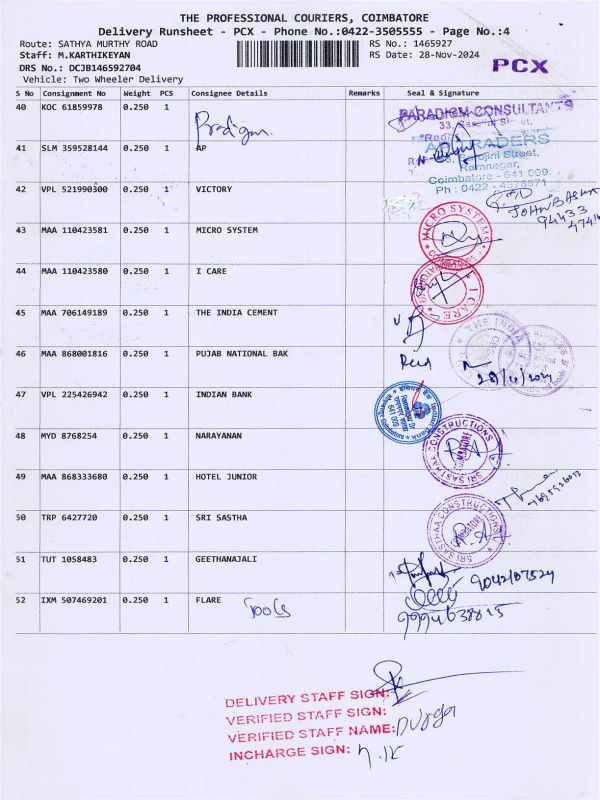 THE PROFESSIONAL COURIERS, COIMBATORE
Delivery Runsheet - PCX - Phone No.:0422-3505555 - Page No.:4
Route: SATHYA MURTHY ROAD
RS No.: 1465927
Staff: M.KARTHIKEYAN
RS Date: 28-Nov-2024
DRS No.: DCJB146592704
PCX
Vehicle: Two Wheeler Delivery
S No Consignment No Weight PCS Consignee Details Remarks Seal & Signature
40 KOC 61859978 0.250 1
PARADIGM CONSULTANTS
41 SLM 359528144 0.250 1 AP
TRADERS
Ramnagar,
Coimbatore - 641 009.
42 VPL 521990300 0.250 1 VICTORY
43 MAA 110423581 0.250 1 MICRO SYSTEM
MICRO SYSTEMS
44 MAA 110423580 0.250 1 I CARE
I CARE
45 MAA 706149189 0.250 1 THE INDIA CEMENT
THE INDIA
46 MAA 868001816 0.250 1 PUJAB NATIONAL BAK
47 VPL 225426942 0.250 1 INDIAN BANK
48 MYD 8768254 0.250 1 NARAYANAN
SRI SASTHAA CONSTRUCTIONS
49 MAA 868333680 0.250 1 HOTEL JUNIOR
50 TRP 6427720 0.250 1 SRI SASTHA
SRI SASTHAA CONSTRUCTIONS
51 TUT 1058483 0.250 1 GEETHANAJALI
52 IXM 507469201 0.250 1 FLARE Tools
DELIVERY STAFF SIGN:
VERIFIED STAFF SIGN:
VERIFIED STAFF NAME: Durga
INCHARGE SIGN: